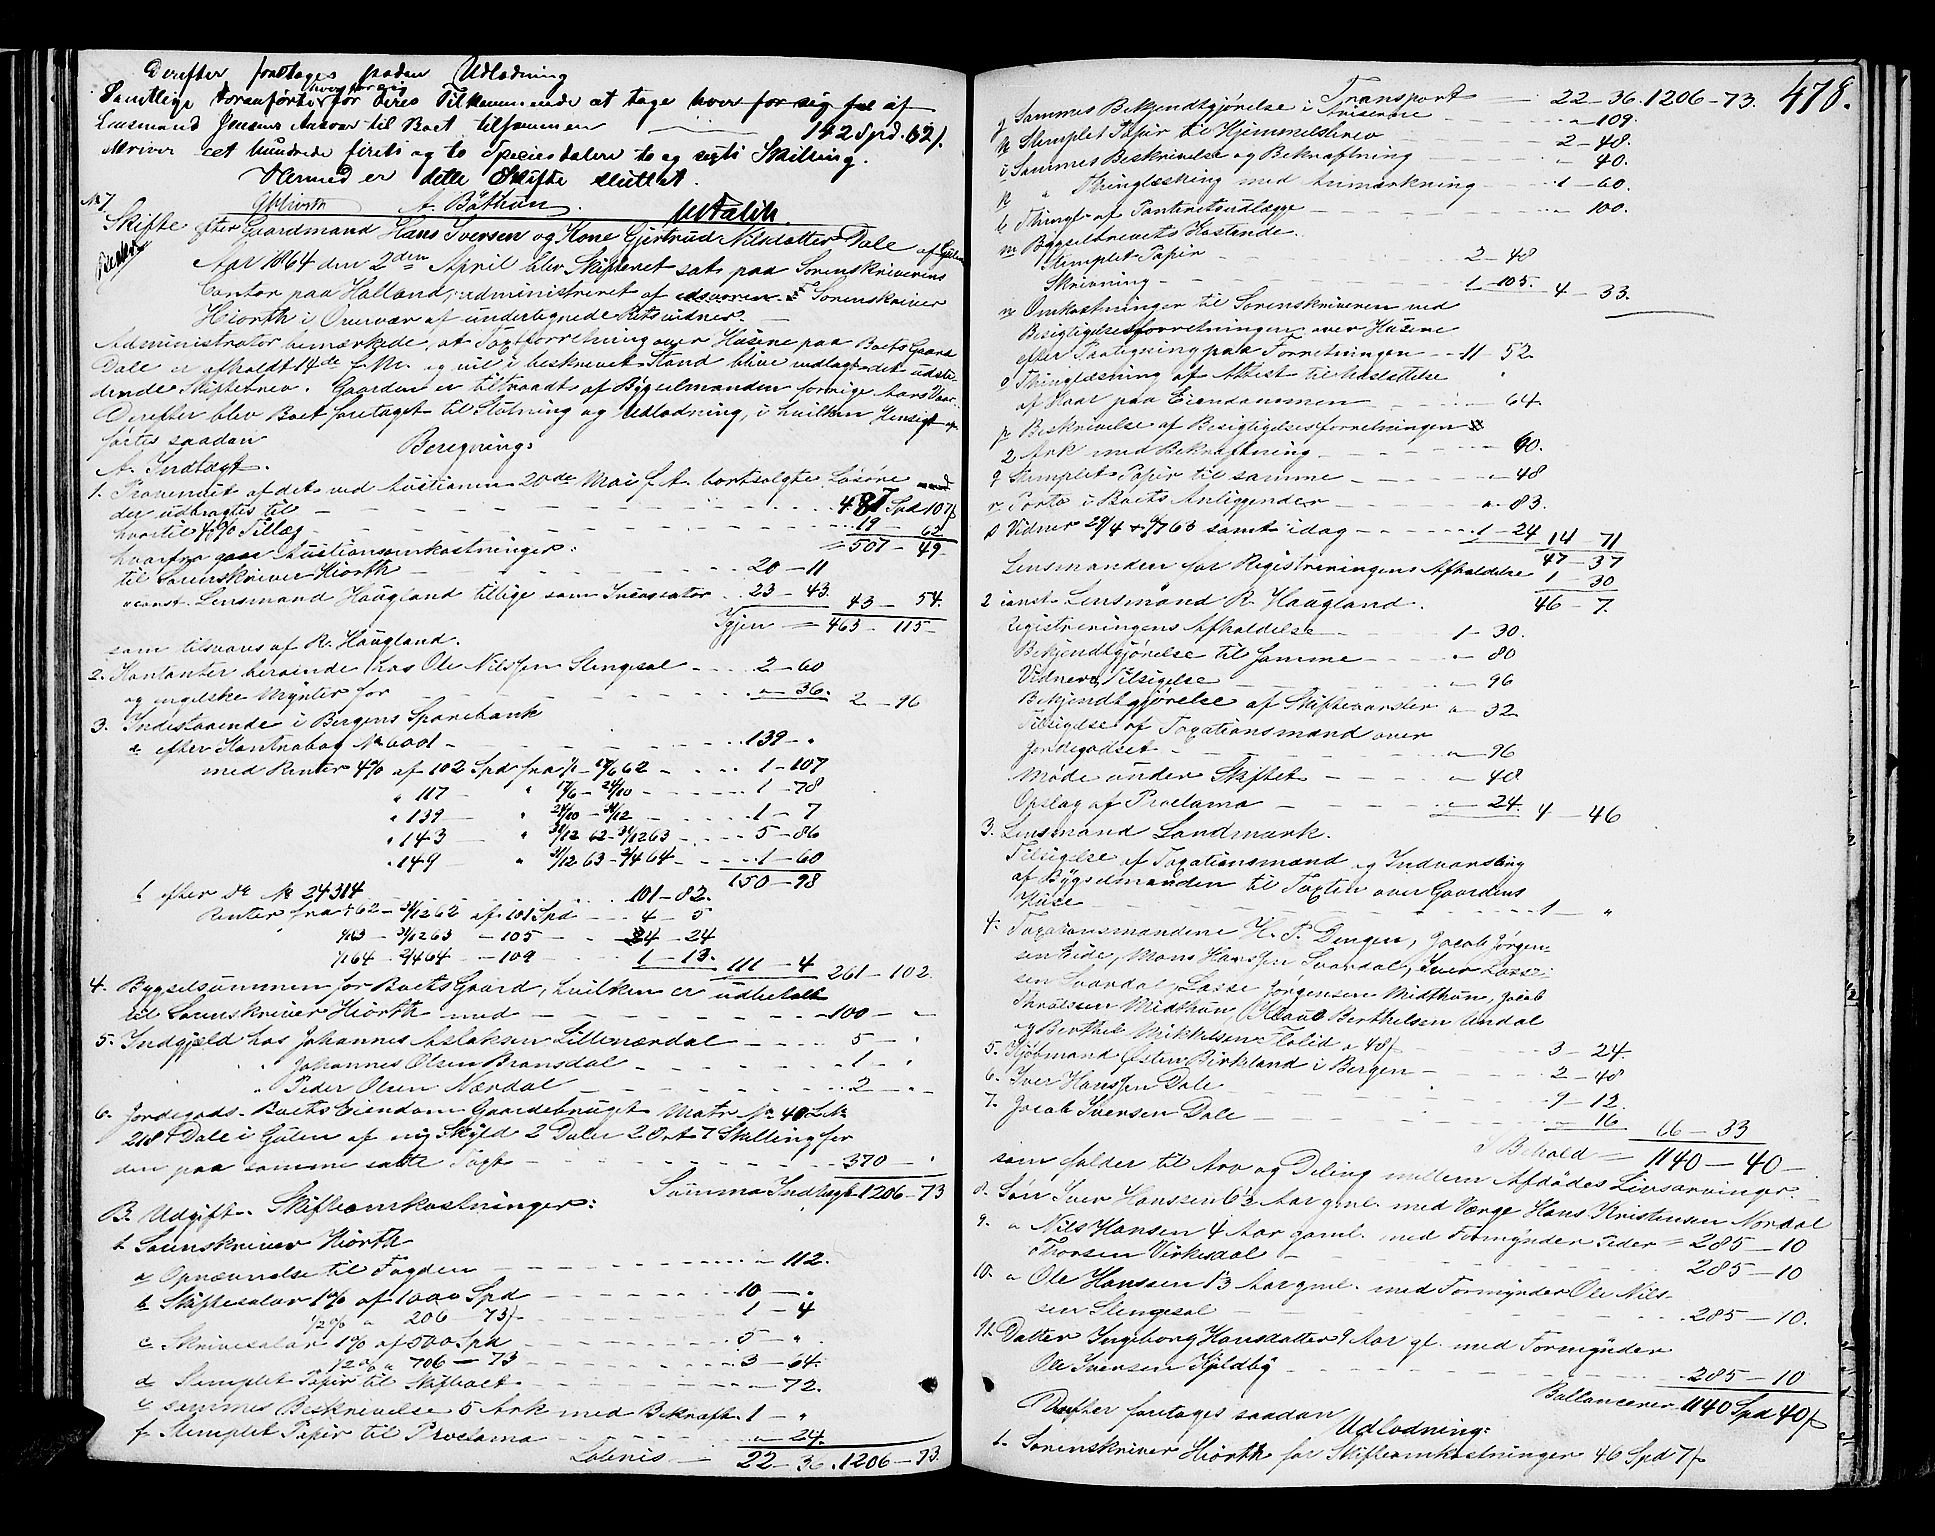 Derefter foretages saadan Udlodning
Samtlige foranførte hver for sig for deres Tilkommende at tage hver for sig af
Lensmand Jensens Ansvar til Boet tilsammen 142 Spd. 62 ß.
skriver eet hundrede fireti og to Speciedalere to og sexti Skilling.
Hermed er dette Skifte sluttet.
GHiorth A. Bøthun.
No 7
Skifte efter Gaardmand Hans Iversen og Kone Gjertrud Nilsdatter Dale af Gulen
Aar 1864 den 2den April blev Skifteret sat paa Sorenskriverens
Contor paa Halland, administreret af Sorenskriver
Hiorth i Overvær af undertegnede Retsvidner. —
Administrator bemærkede, at Taxtforretning over Husene paa Boets Gaard
Dale er afholdt 14de f. M. og vil i beskrevet Stand blive vedlagt det udste-
dende Skiftebrev. Gaarden er tiltraadt af Bygselmanden forrige Aars Vaar.
Derefter blev Boet foretaget til Slutning og Udlodning, i hvilken Hensigt op-
førtes saadan
Beregning:
A. Indtægt.
1. Provenuet af det ved Auctionen 20de Mai f. A. bortsolgte Løsøre
der udbragtes til 487 Spd 107 ß
hvortil 4% Tillæg 19 – 62
= 507 – 49
hvorfra gaar Auctionsomkostninger:
til Sorenskriver Hiorth 20 – 11
" const. Lensmand Haugland tillige som Incassator 23 – 43. 43 – 54.
Igjen = 463 – 115
som tilsvares af R. Haugland.
2. Kontanter beroende hos Ole Nilssen Stengesol 2 – 60
og engelske Mynter for " – 36. 2 – 96
3. Indestaaende i Bergens Sparebank
a efter Kontrabog No 6001 139 – "
med Renter 4% af 102 Spd fra 1/1 – 17/6 62 1 – 107
" 117 – " 17/6 – 24/10 1 – 78
" 139 – " 24/10 – 31/12 1 – 7
" 143 – " 31/12 62 – 31/12 63 5 – 86
" 149 – " 31/12 63 – 2/4 64 1 – 60
150 – 98
b efter do No 24314 101 – 82.
Renter fra 62 – 31/12 62 af 101 Spd 4 – 5
1/1 63 – 31/12 63 – 105 – 4 – 24
1/1 64 – 2/4 64 – 109 1 – 13.
111 – 4 261 – 102.
4. Bygselsummen for Boets Gaard, hvilken er udbetalt
til Sorenskriver Hiorth med 100 – "
5. Indgjæld hos Johannes Aslaksen Lillenærdal 5 – "
" Johannes Olsen Bransdal 1 – "
" Peder Olsen Nærdal 2 – "
6. Jordegods. Boets Eiendom Gaardebruget Matr No 40 L No
218 Dale i Gulen af ny Skyld 2 Daler 2 Ort 7 Skilling for
den paa samme satte Taxt 370 – "
Summa Indtægt 1206 – 73
B. Udgift. Skifteomkostninger:
1. Sorenskriver Hiorth
a Opnævnelse til Fogden " – 112.
b Skiftesalar 1% af 1000 Spd 10 – "
1/2% " 206 – 73 ß 1 – 4
c Skrivesalar 1% af 500 Spd 5 – "
1/2% " 706 – 73 3 – 64.
d Stemplet Papir til Skiftet " – 72.
e sammes Beskrivelse 5 Ark med Bekræft. 1 – "
f Stemplet Papir til Proclama " – 24.
Lateris 22 – 36. 1206 – 73.
478.
Transport 22 – 36. 1206 – 73.
g Sammes Bekjendtgjørelse i Aviserne " – 109.
h Stemplet Papir til Hjemmelsbrev 2 – 48.
i Sammes Beskrivelse og Bekræftning " – 40.
k " Thinglæsning med Anmærkning 1 – 60.
l Thingl. af Panteretsudlægg " – 100.
m Bygselbrevets Kostende.
Stemplet Papir 2 – 48
Skrivning 1 – 105. 4 – 33.
n Omkostninger til Sorenskriveren ved
Besigtigelsesforretningen over Husene
efter Paategning paa Forretningen 11 – 52.
o Thinglæsning af Attest til Udslettelse
af Haar paa Eiendommen " – 64.
p Beskrivelse af Besigtigelsesforretningen
2 Ark med Bekræftning " – 60.
q Stemplet Papir til samme " – 48
r Porto i Boets Anliggender " – 83.
s Vidner 29/4 63 samt idag 1 – 24 14 – 71
47 – 37
Lensmanden for Registreringens Afholdelse 1 – 30
46 – 7.
2 const. Lensmand R. Haugland.
Registreringens Afholdelse 1 – 30.
Bekjendtgjørelse til samme " – 80
Vidners Tilsigelse " – 96
Bekjendtgjørelse af Skiftevarsler " – 32
Tilsigelse af Taxationsmænd over
Jordegodset " – 96
Møde under Skiftet " – 48
Opslag af Proclama " – 24. 4 – 46
3. Lensmand Landmark.
Tilsigelse af Taxationsmænd og Indvarsling
af Bygselmanden til Taxten over Gaardens
Huse 1 – "
4. Taxationsmændene H. P. Dingen, Jacob Jørgen-
sen Eide, Mons Hanssen Svardal, Iver Lasse-
sen Svardal, Lasse Jørgensen Midthun, Jacob
Thralssen Midthun, Klaus Berthelsen Undal
og Berthel Mikkelsen Flolid a 48 ß 3 – 24
5. Kjøbmand Østen Birkeland i Bergen 2 – 48
6. Iver Hanssen Dale 9 – 12.
7. Jacob Iversen Dale " – 16
66 – 33
I Behold = 1140 – 40 –
som falder til Arv og Deling mellem Afdødes Livsarvinger. –
8. Søn Iver Hanssen 16 1/2 Aar gml. med Værge Hans Kristensen Nordal
285 – 10
9. " Nils Hansen 4 Aar gaml. med Formynder Peder
Thorsen Virkesdal 285 – 10
10. " Ole Hanssen 13 Aar gml. med Formynder Ole Nils-
sen Stengesol 285 – 10.
11. Datter Ingeborg Hansdatter 9 Aar gl. med Formynder
Ole Iversen Kjeldby 285 – 10
Ballancerer 1140 Spd 40 ß
Derefter foretages saadan
Udlodning:
1. Sorenskriver Hiorth for Skifteomkostninger 46 Spd 7 ß